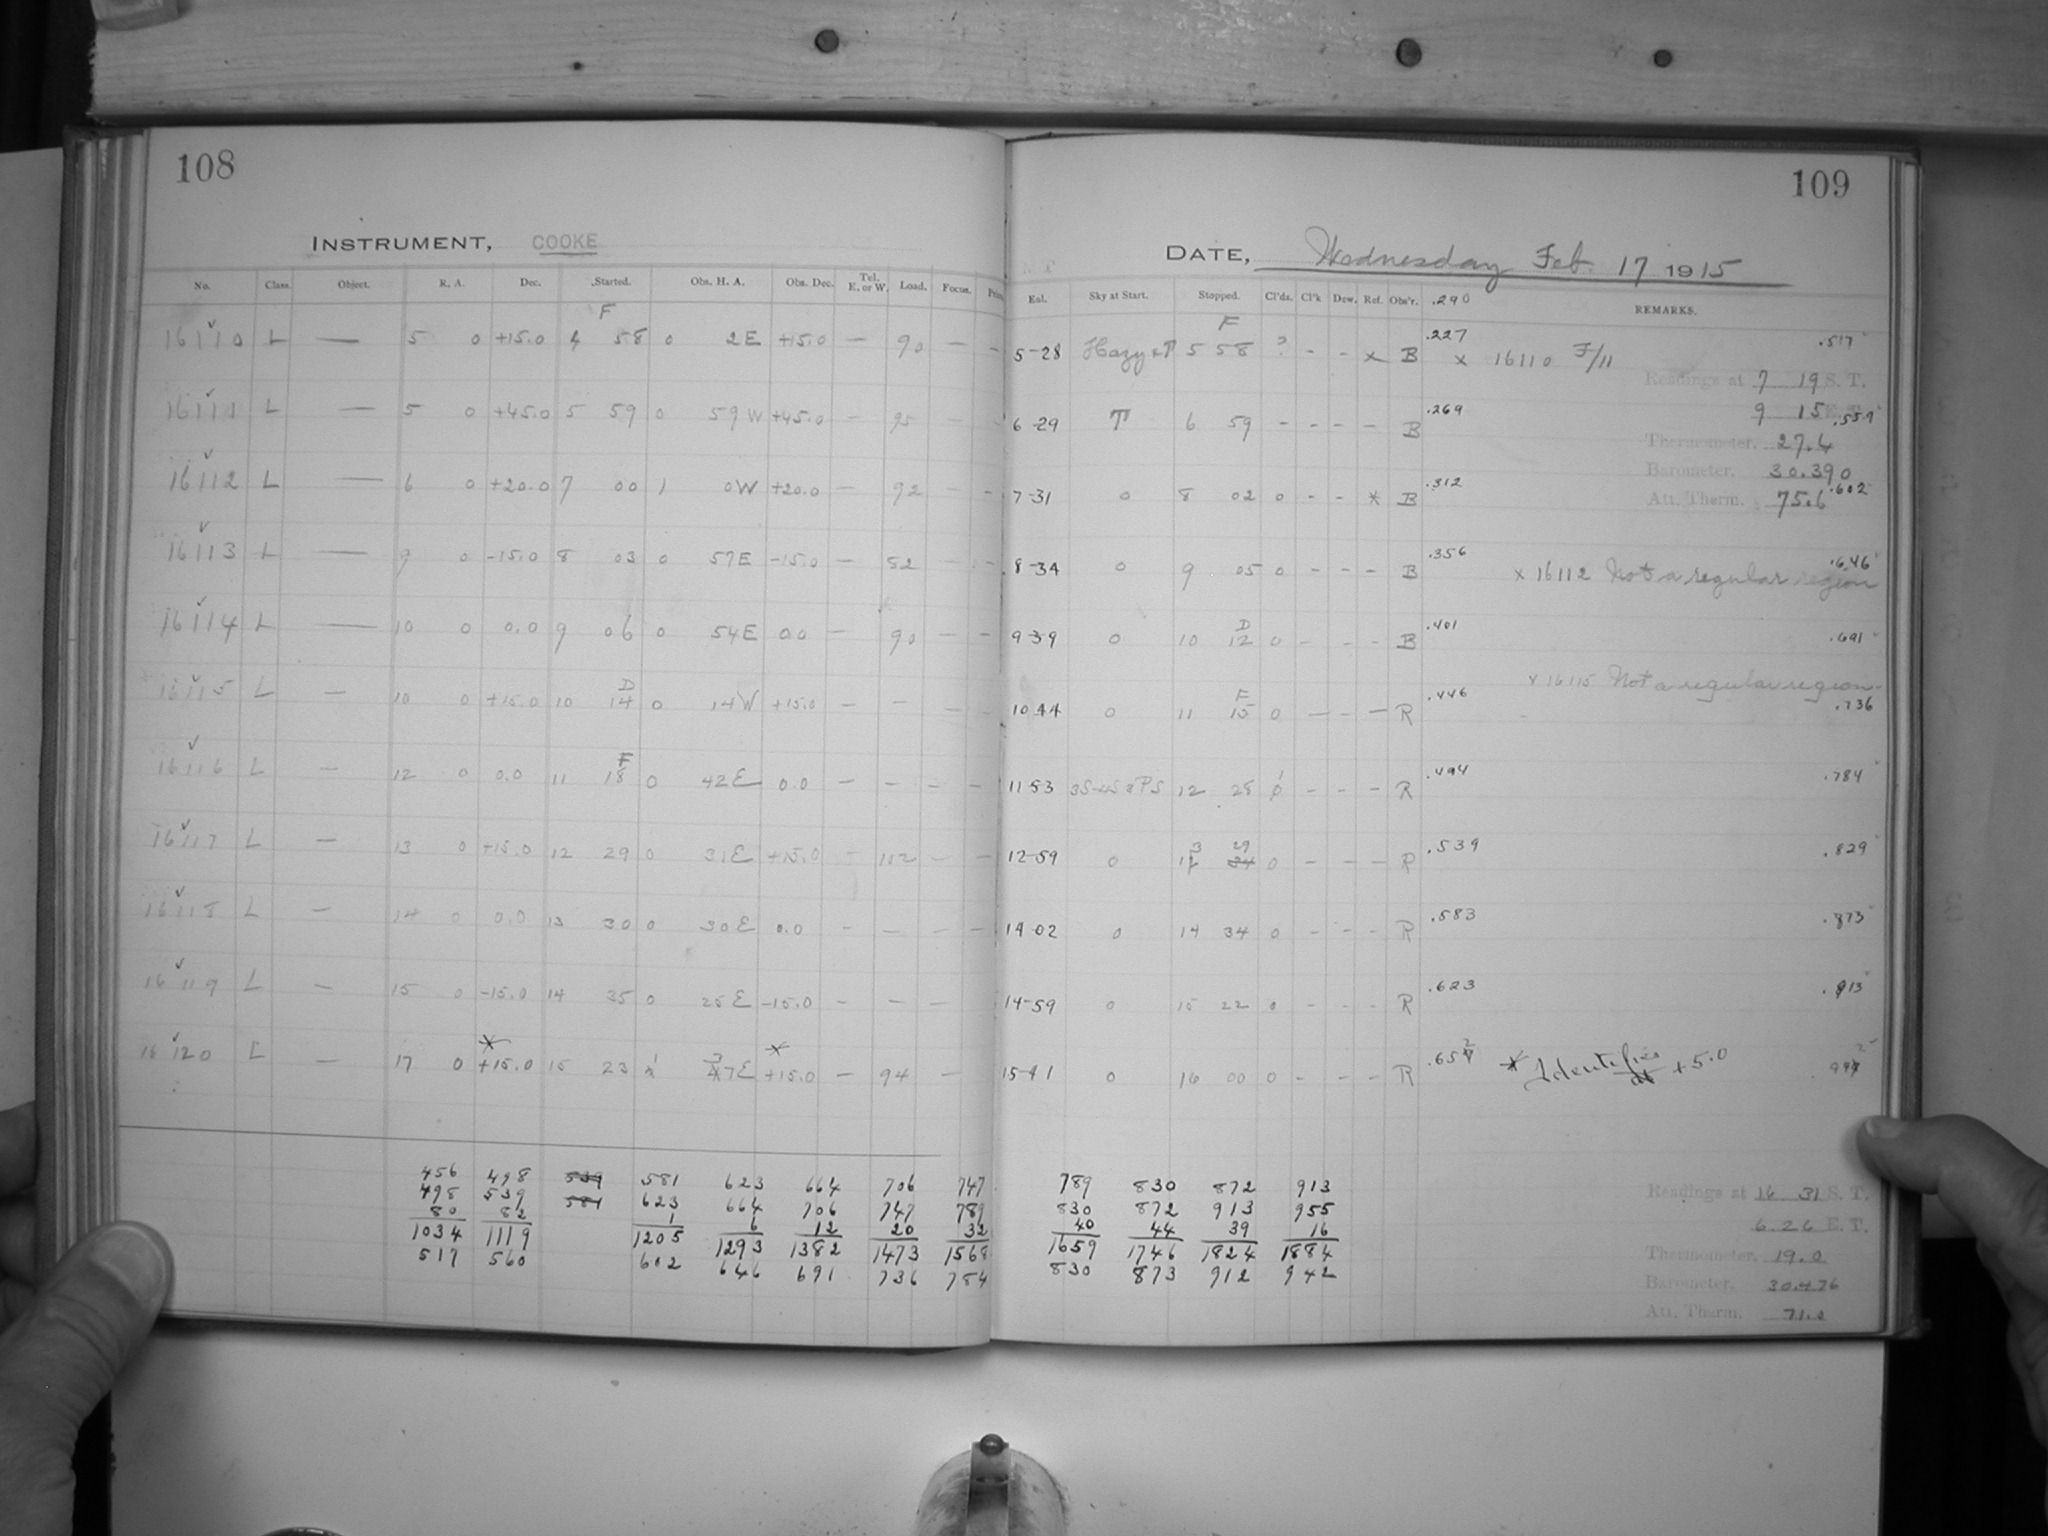 108
109
INSTRUMENT, COOKE
DATE, Wednesday Feb. 17 1915
No. Class. Object. R. A. Dec. Started. Obs. H. A. Obs. Dec. Tel. E. or W. Load. Focus.
Eal. Sky at Start. Stopped. Cl'ds. Cl'k Dew. Ref. Obs'r. .290 REMARKS.
16110 L — 5 0 +15.0 4 F 58 0 2E +15.0 — 90 — — 5-28 Hazy 5 F 58 ? - - x B .227 x 16110 F/11 .517
Readings at 7 19 S. T.
9 15 E. T.
16111 L — 5 0 +45.0 5 59 0 59 W +45.0 — 95 — — 6-29 T 6 59 - - - - B .269 .559
Thermometer. 27.4
Barometer. 30.390
Att. Therm. 75.6
16112 L — 6 0 +20.0 7 00 1 0W +20.0 — 92 — — 7-31 0 8 02 0 - - * B .312 .602
16113 L — 9 0 -15.0 8 03 0 57E -15.0 — 52 — — 8-34 0 9 05 0 - - - B .356 x 16112 Not a regular region .646
16114 L — 10 0 0.0 9 06 0 54E 0.0 — 90 — — 9-39 0 10 D 12 0 - - - B .401 .691
16115 L — 10 0 +15.0 10 D 14 0 14W +15.0 — — — 10 44 0 11 F 15 0 — - — R .446 x 16115 Not a regular region. .736
16116 L — 12 0 0.0 11 F 18 0 42E 0.0 — — — — 11 53 12 28 - - - R .494 .784
16117 L — 13 0 +15.0 12 29 0 31E +15.0 - 112 — — 12-59 0 13 29 0 - - - R .539 .829
16118 L — 14 0 0.0 13 30 0 30E 0.0 — — — — 14-02 0 14 34 0 - - - R .583 .873
16119 L — 15 0 -15.0 14 35 0 25E -15.0 — — — 14-59 0 15 22 0 - - - R .623 .913
16120 L — 17 0 * +15.0 15 23 1 37E * +15.0 — 94 — 15-41 0 16 00 0 - - - R .652 * Identifies at +5.0
456 498 539 581 623 664 706 747 789 830 872 913
498 539 581 623 664 706 747 789 830 872 913 955
80 82 1 6 12 20 32 40 44 39 16
1034 1119 1205 1293 1382 1473 1568 1659 1746 1824 1884
517 560 602 646 691 736 784 830 873 912 942
Readings at 16 31 S. T.
6 26 E. T.
Thermometer. 19.0
Barometer. 30.426
Att. Therm. 71.0